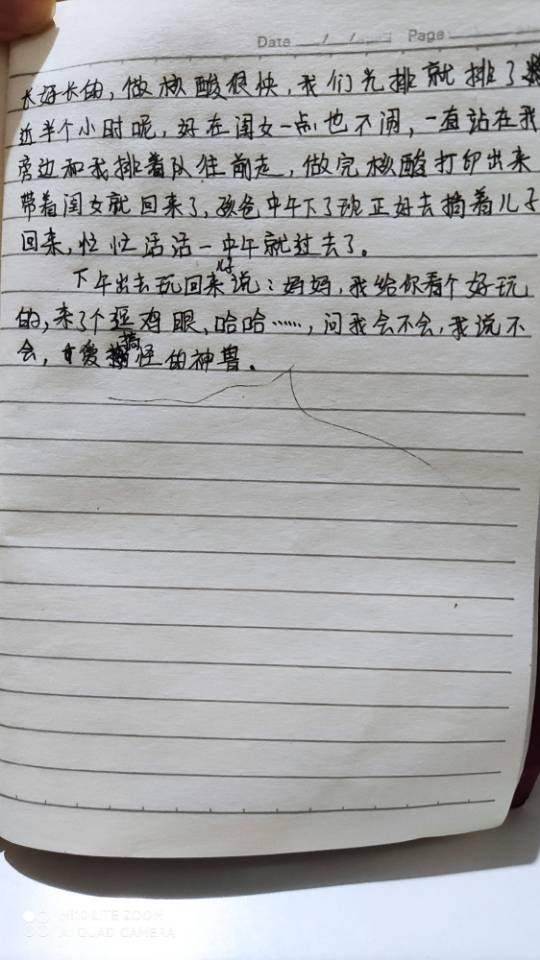 Date / / Page
长好长的，做核酸很快，我们光排就排了
近半个小时呢，好在闺女一点也不闹，一直站在我
旁边和我排着队往前走，做完核酸打印出来
带着闺女就回来了，孩爸中午下了班正好去捎着儿子
回来，忙忙活活一中午就过去了。
下午出去玩回来儿子说：妈妈，我给你看个好玩
的，来了个逗鸡眼，哈哈……，问我会不会，我说不
会，爱搞怪的神兽。
MI 10 LITE ZOOM
AI QUAD CAMERA